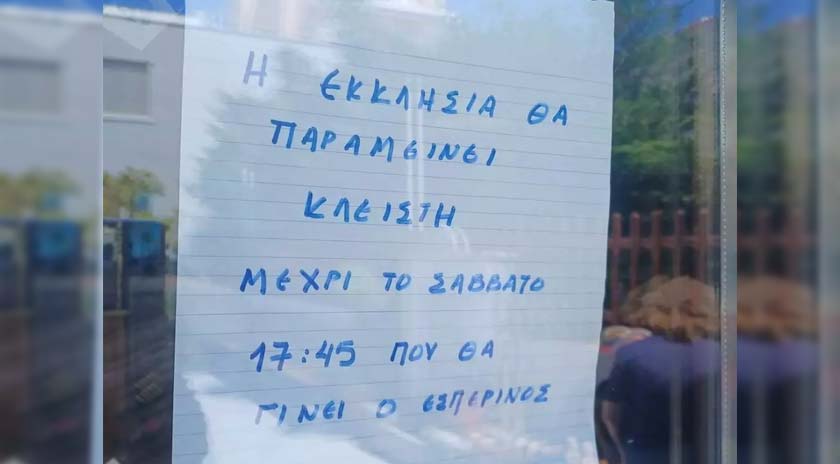 Η ΕΚΚΛΗΣΙΑ ΘΑ
ΠΑΡΑΜΕΙΝΕΙ
ΚΛΕΙΣΤΗ
ΜΕΧΡΙ ΤΟ ΣΑΒΒΑΤΟ
17:45 ΠΟΥ ΘΑ
ΓΙΝΕΙ Ο ΕΣΠΕΡΙΝΟΣ